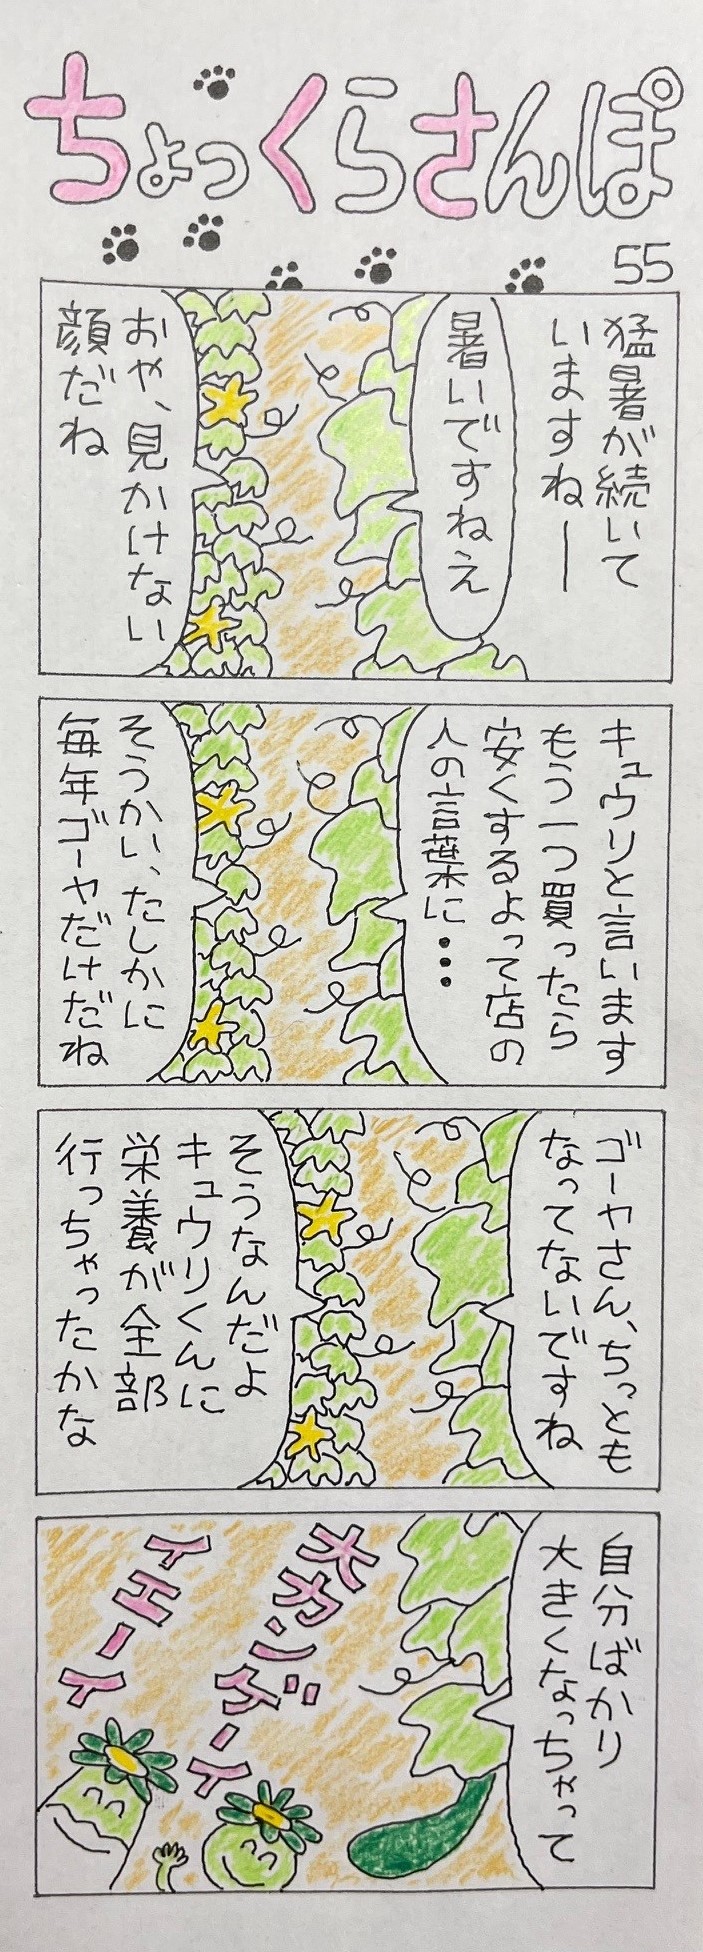 ちょっくらさんぽ
55
猛暑が続いて
いますねー
暑いですねえ
おや、見かけない
顔だね
キュウリと言います
もう一つ買ったら
安くするよって店の
人の言葉に・・・
そうかい、たしかに
毎年ゴーヤだけだね
ゴーヤさん、ちっとも
なってないですね
そうなんだよ
キュウリくんに
栄養が全部
行っちゃったかな
自分ばかり
大きくなっちゃって
大カンゲーイ
イエーイ